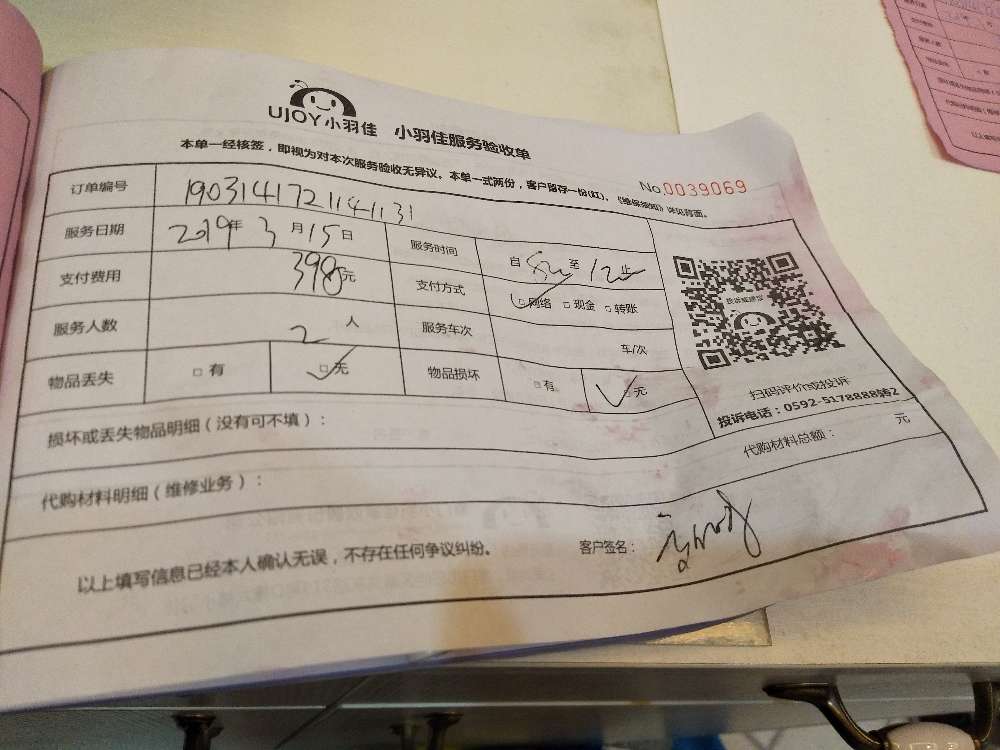 UJOY小羽佳 小羽佳服务验收单
本单一经核签，即视为对本次服务验收无异议。本单一式两份，客户留存一份(红)。《维保须知》详见背面。
No 0039069
订单编号 190314172114131
服务日期 2019年3月15日 服务时间 自 至 12 止
支付费用 398元 支付方式 □网络 □现金 □转账
服务人数 2人 服务车次 车/次
物品丢失 □有 □无 物品损坏 □有 □无
投诉或建议
扫码评价或投诉
投诉电话：0592-5178888转2
损坏或丢失物品明细（没有可不填）：
代购材料明细（维修业务）： 代购材料总额： 元
以上填写信息已经本人确认无误，不存在任何争议纠纷。 客户签名：